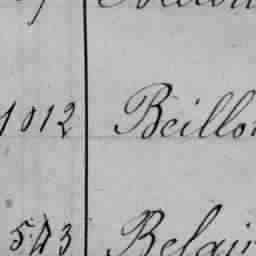 1012 Beillo
543 Belair